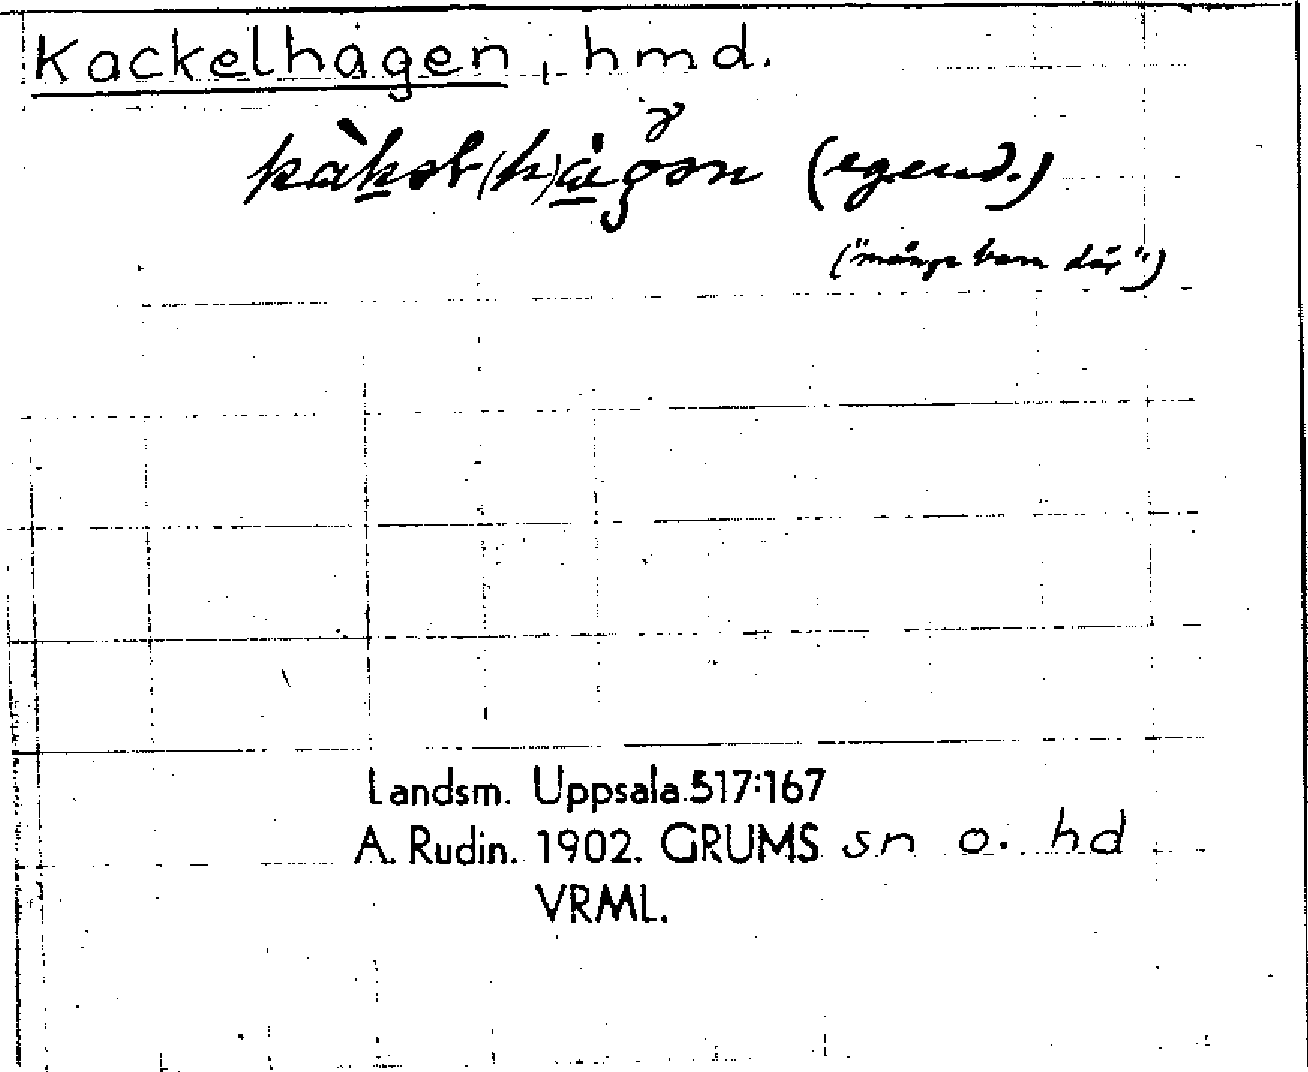 Kackelhagen, hmd.
kàkəl(h)ágən (egend.)
("många barn där")
Landsm. Uppsala.517:167
A. Rudin. 1902. GRUMS sn o. hd
VRML.